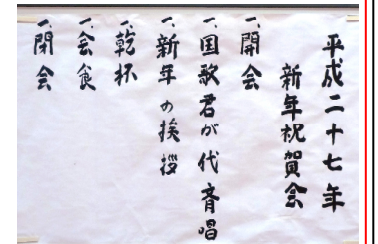 平成二十七年
新年祝賀会
一、開会
一、国歌君が代斉唱
一、新年の挨拶
一、乾杯
一、会食
一、閉会